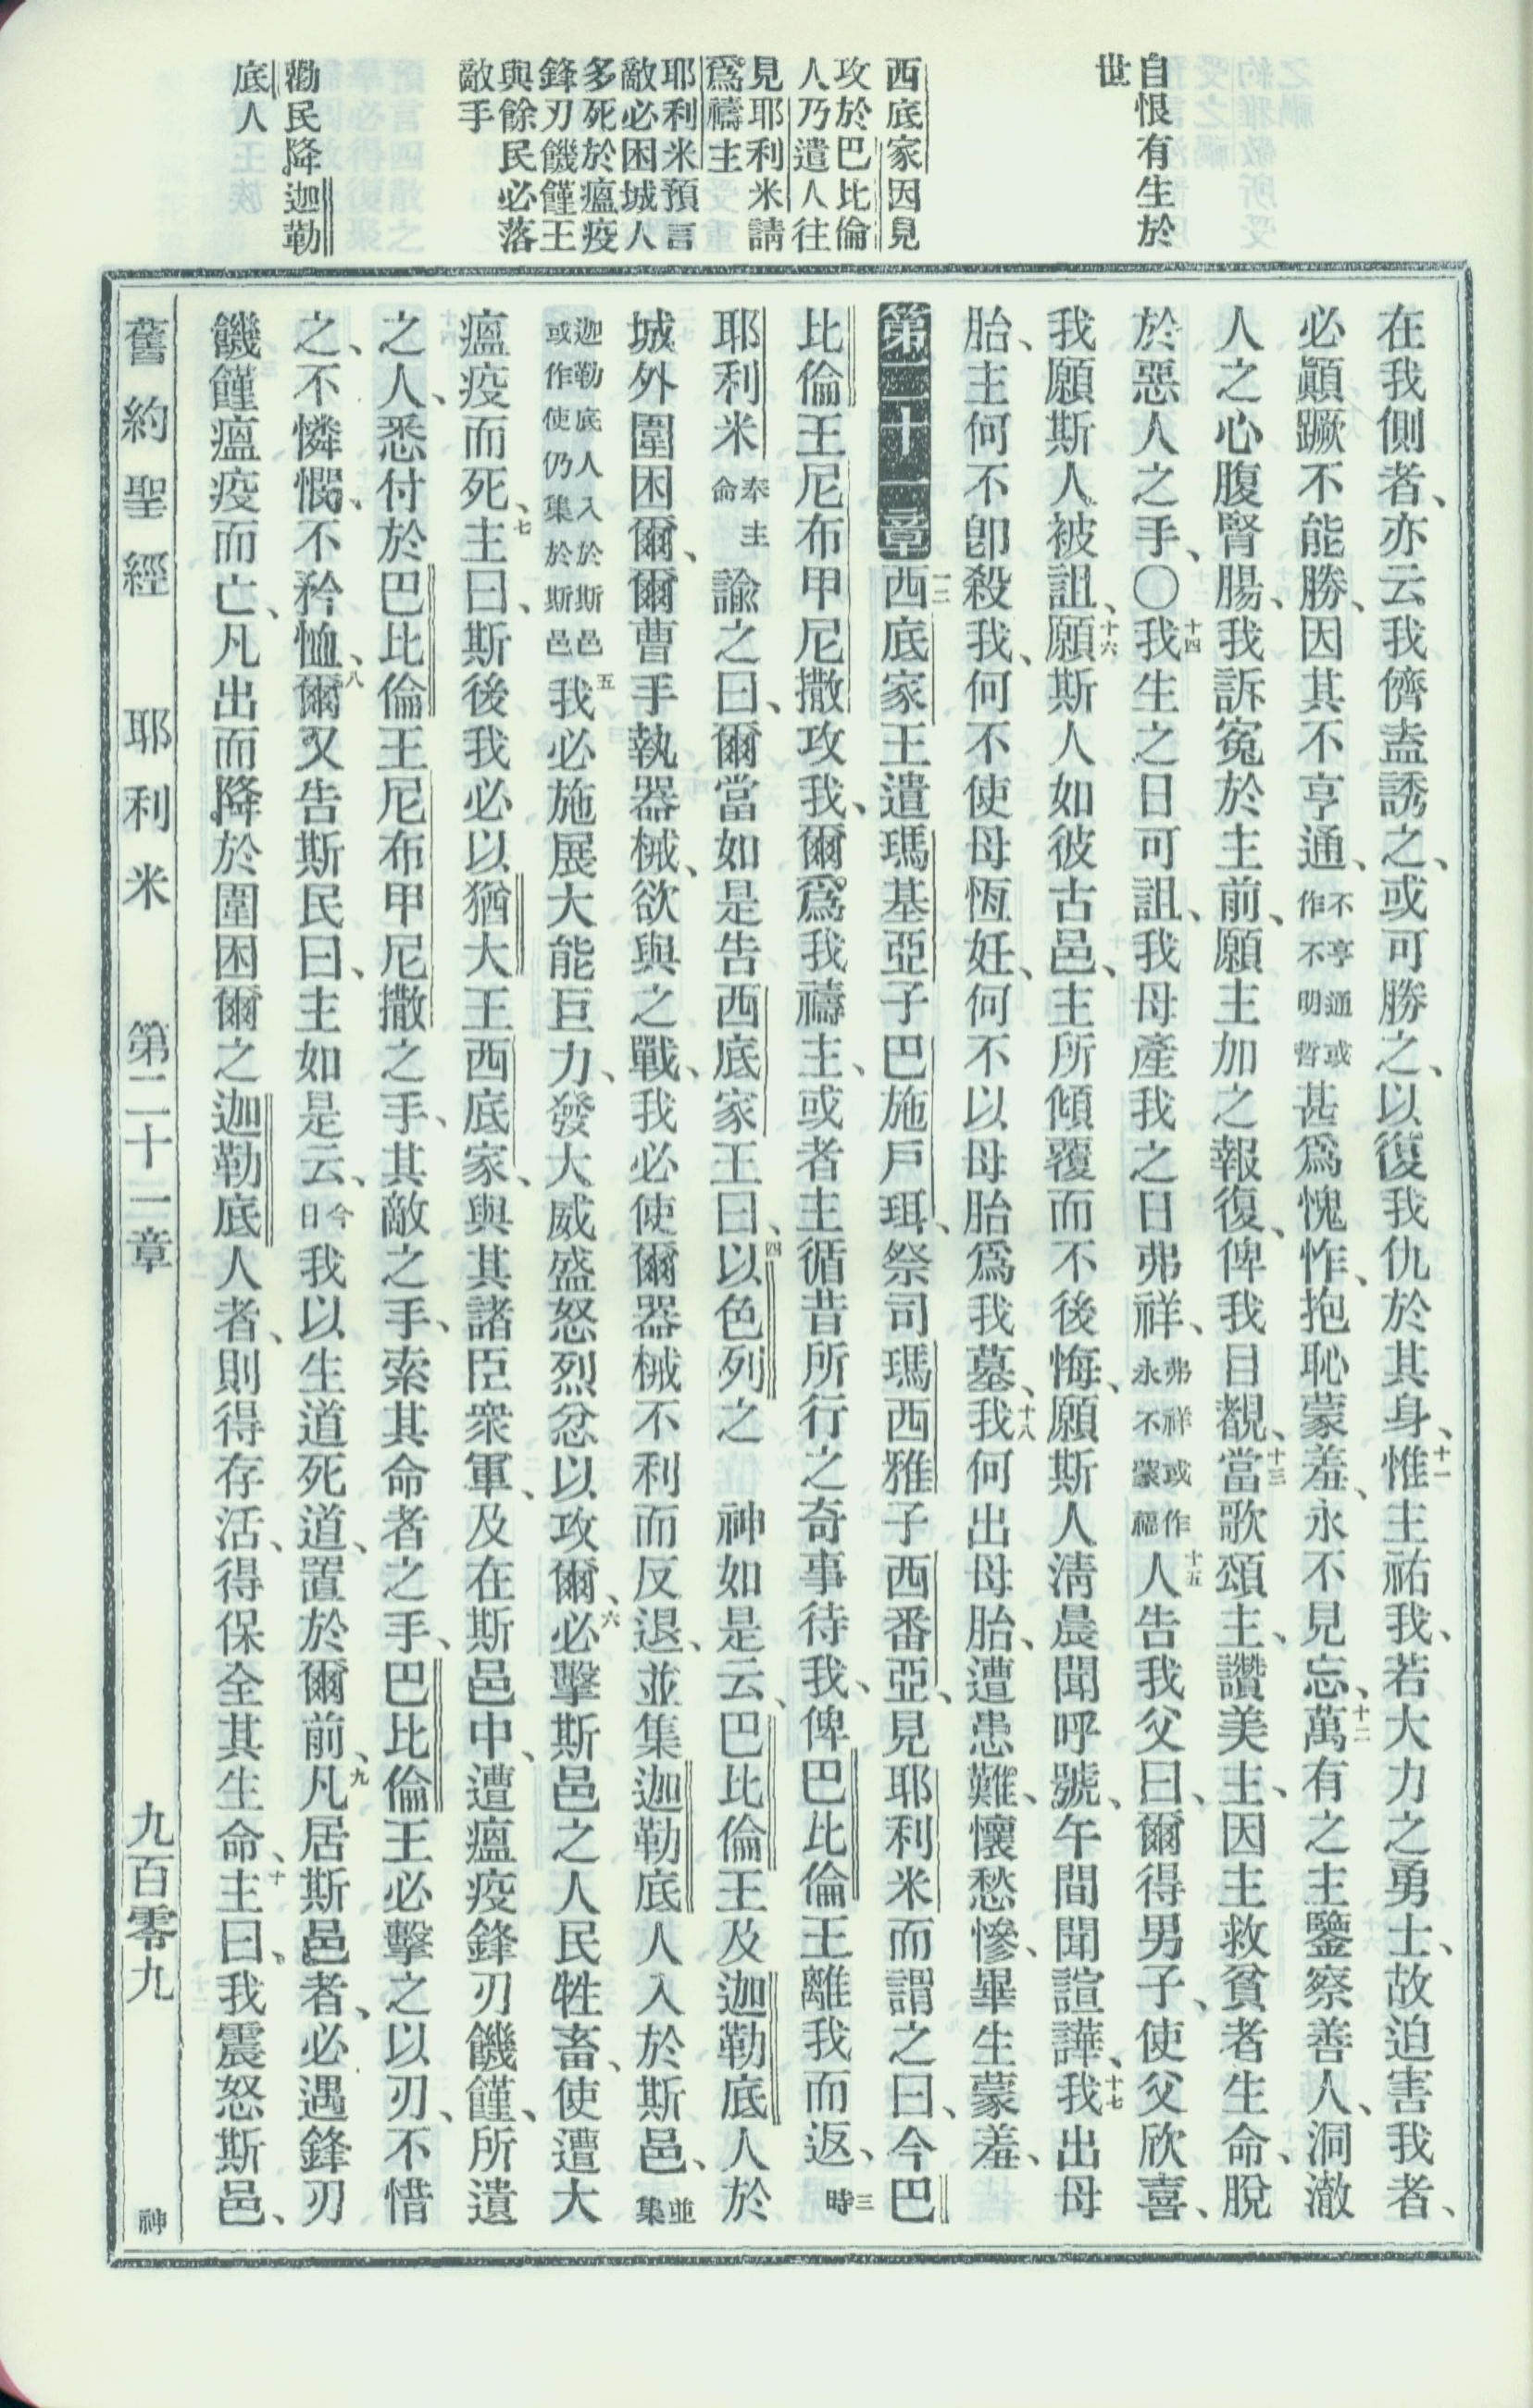 自恨有生於
世
西底家因見
攻於巴比倫
人乃遣人往
見耶利米請
爲禱主
耶利米預言
敵必困城人
多死於瘟疫
鋒刃饑饉王
與餘民必落
敵手
勸民降迦勒
底人
在我側者、亦云我儕盍誘之、或可勝之、以復我仇於其身、十一惟主祐我、若大力之勇士、故迫害我者、
必顚蹶不能勝、因其不亨通、不亨通或作不明哲甚爲愧怍、抱恥蒙羞、永不見忘、十二萬有之主鑒察善人、洞澈
人之心腹腎腸、我訴寃於主前、願主加之報復、俾我目覩、十三當歌頌主、讚美主、因主救貧者生命、脫
於惡人之手、〇十四我生之日可詛、我母產我之日弗祥、弗祥或作永不蒙福十五人告我父曰、爾得男子、使父欣喜、
我願斯人被詛、十六願斯人如彼古邑、主所傾覆而不後悔、願斯人淸晨聞呼號、午間聞諠譁、十七我出母
胎、主何不卽殺我、何不使母恆妊、何不以母胎爲我墓、十八我何出母胎、遭患難、懷愁慘、畢生蒙羞、
第二十一章 一二西底家王遣瑪基亞子巴施戶珥、祭司瑪西雅子西番亞、見耶利米而謂之曰、今巴
比倫王尼布甲尼撒攻我、爾爲我禱主、或者主循昔所行之奇事待我、俾巴比倫王離我而返、三時
耶利米奉主命諭之曰、爾當如是吿西底家王曰、四以色列之 神如是云、巴比倫王及迦勒底人於
城外圍困爾、爾曹手執器械、欲與之戰、我必使爾器械不利而反退、並集迦勒底人入於斯邑、並集
迦勒底人入於斯邑或作使仍集於斯邑五我必施展大能巨力、發大威盛怒烈忿以攻爾、六必擊斯邑之人民牲畜、使遭大
瘟疫而死、七主曰、斯後我必以猶大王西底家、與其諸臣衆軍、及在斯邑中、遭瘟疫鋒刃饑饉、所遺
之人、悉付於巴比倫王尼布甲尼撒之手、其敵之手、索其命者之手、巴比倫王必擊之以刃、不惜
之、不憐憫、不矜恤、八爾又告斯民曰、主如是云、今日我以生道死道、置於爾前、九凡居斯邑者、必遇鋒刃
饑饉瘟疫而亡、凡出而降於圍困爾之迦勒底人者、則得存活、得保全其生命、十主曰、我震怒斯邑、
舊約聖經 耶利米 第二十一章 九百零九 神